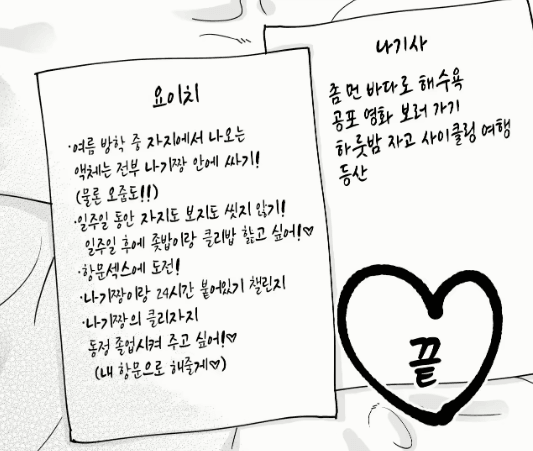 요이치
·여름 방학 중 자지에서 나오는
액체는 전부 나기짱 안에 싸기!
(물론 오줌도!!)
·일주일 동안 자지도 보지도 씻지 않기!
일주일 후에 좆밥이랑 클리밥 핥고 싶어!♡
·항문섹스에 도전!
·나기짱이랑 24시간 붙어있기 챌린지
·나기짱의 클리자지
동정 졸업시켜 주고 싶어!♡
(내 항문으로 해줄게♡)
나기사
좀 먼 바다로 해수욕
공포 영화 보러 가기
하룻밤 자고 사이클링 여행
등산
끝